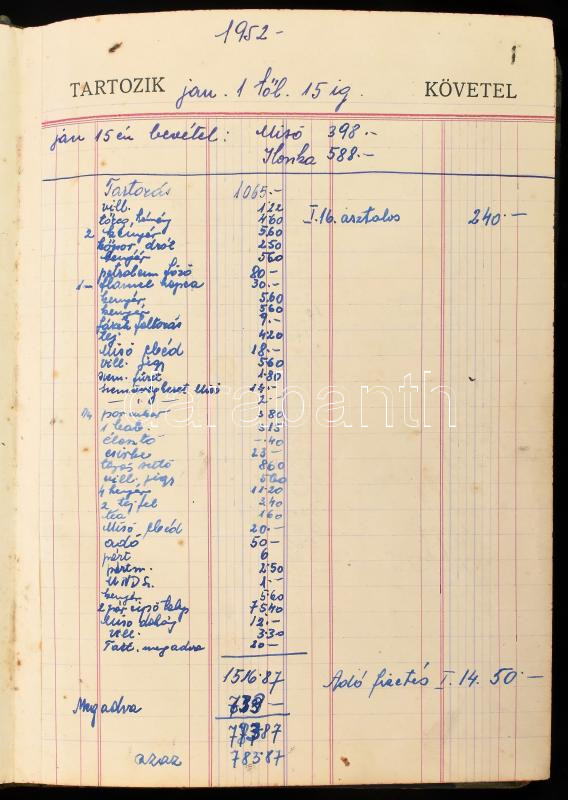 1952 -
1
TARTOZIK jan. 1 től. 15 ig. KÖVETEL
jan 15 én bevétel: Misó 398.-
Ilonka 588.-
Tartozás 1065.-
vill. 1.22
4.60 I.16. asztalos 240.-
2 kenyér 5.60
2.50
kenyér 5.60
petróleum főző 80 -
1 - flanel 30.-
kenyér 5.60
kenyér 5.60
foltozás 9.-
tej 4.20
Misó ebéd 18.-
vill. jegy 5.60
1.80
szemüvegkeret Misó 14.-
2.-
darabanth
1/4 porcukor 3.80
1 3.15
élesztő -.40
csirke 23 -
sütő 8.60
vill. jegy 5.60
4 kenyér 11.20
2 tejfel 2.40
tea 1.60
Misó ebéd 20.-
adó 50 -
párt 6
2.50
MNDSz. 1.-
kenyér 5.60
2 pár cipő talp 75.40
Misó dohány 12.-
vill. 3.30
Tart. megadva 20 -
1516.87 Adó fizetés I. 14. 50.-
Megadva
787.87
azaz 783.87